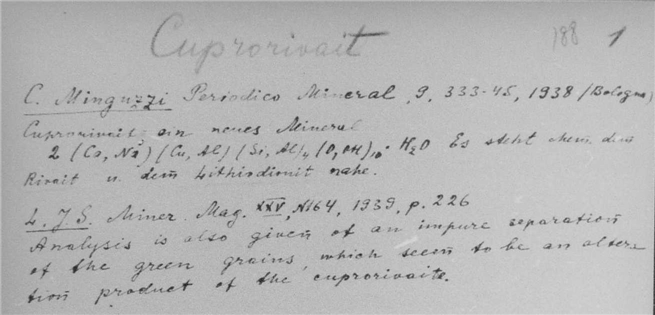 Cuprorivait 188 1
C. Minguzzi Periodico Mineral, 9, 333-45, 1938 (Bologna)
Cuprorivait ein neues Mineral
2 (Ca, Na) (Cu, Al) (Si, Al)4 (O, OH)10 · H2O Es steht chem. dem
Rivait u. dem Lithidionit nahe.
L. J. S. Miner. Mag. XXV, N164, 1939, p. 226
Analysis is also given of an impure separation
of the green grains, which seem to be an altera
tion product of the cuprorivaite.